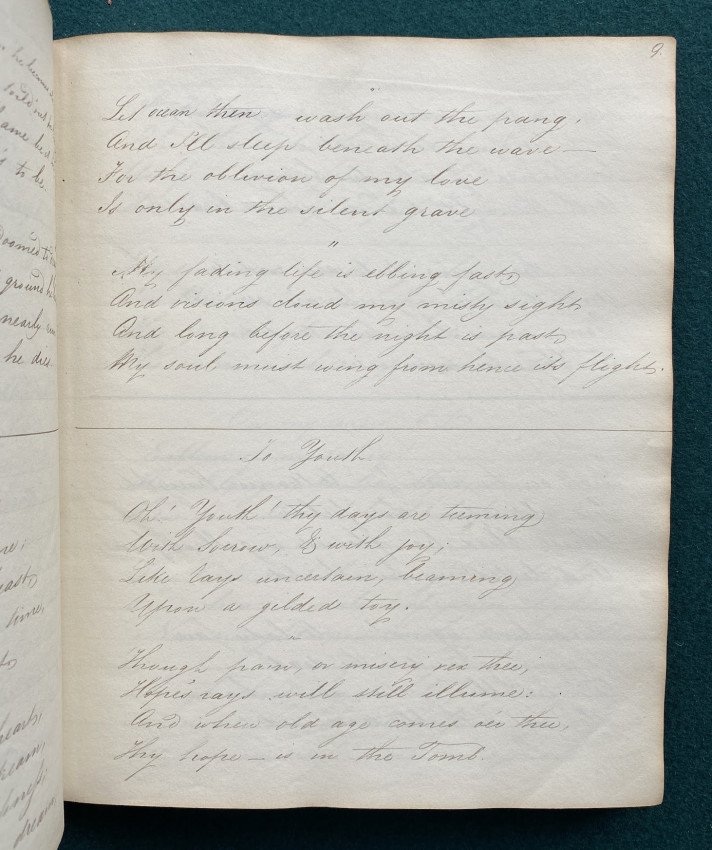 9.
Let ocean then wash out the pang.
And I'll sleep beneath the wave —
For the oblivion of my love
Is only in the silent grave
"
My fading life is ebbing fast,
And visions cloud my misty sight,
And long before the night is past,
My soul must wing from hence its flight.
To Youth
Oh! Youth! thy days are teeming
With Sorrow, & with joy;
Like rays uncertain, beaming
Upon a gilded toy.
Though pain, or misery vex thee,
Hope's rays will still illume:
And when old age comes oer thee,
Thy hope — is in the Tomb.
to be.
nearly
he dies
time,
dream